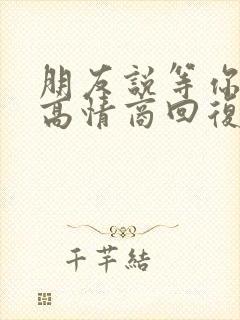 朋友說等你
高情商回復
千芊結